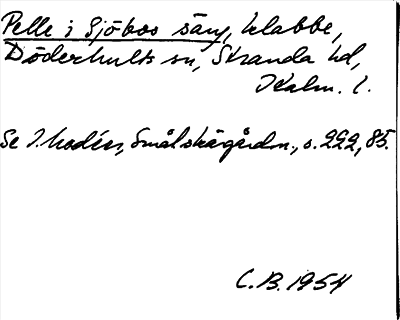 Pelle i Sjöbos säng, klabbe,
Döderhults sn, Stranda hd,
Kalm. l.
Se I. Modéer, Smål. skärgårdsn., s. 222, 85.
C.B. 1954